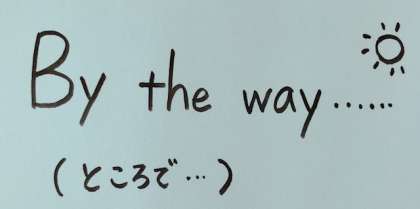 By the way......
(ところで…)